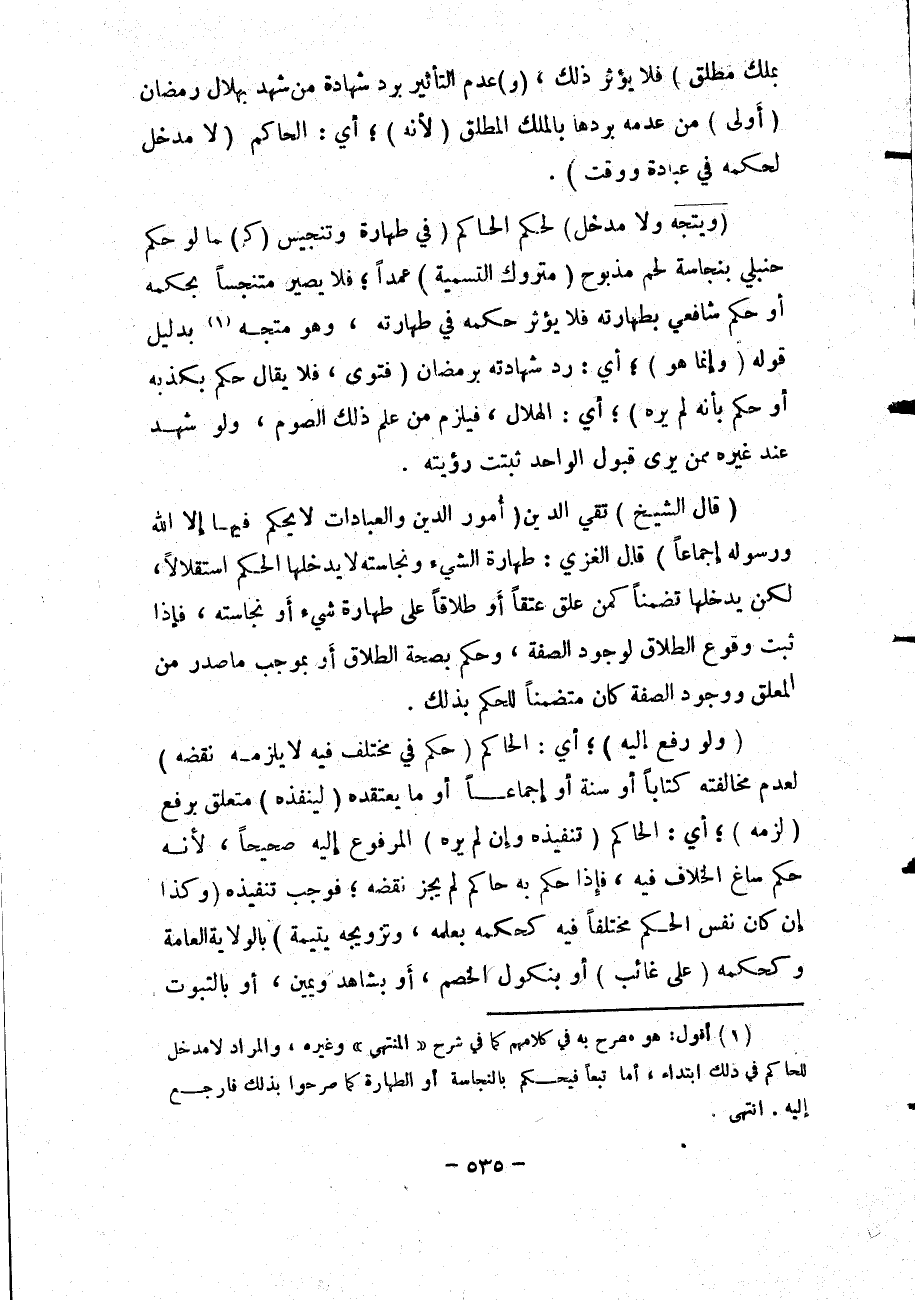 بملك مطلق ) فلا يؤثر ذلك ، (و)عدم التأثير برد شهادة من شهد بهلال رمضان
( أَولى ) من عدمه بردها بالملك المطلق ( لأنه ) ؛ أي : الحاكم ( لا مدخل
لحكمه في عبادة ووقت ) .
(ويتجه ولا مدخل) لحكم الحاكم ( في طهارة وتنجيس (كـ) ما لو حكم
حنبلي بنجاسة لحم مذبوح ( متروك التسمية ) عمداً ؛ فلا يصير متنجساً بحكمه
أو حكم شافعي بطهارته فلا يؤثر حكمه في طهارته ، وهو متجـه (١) بدليل
قوله ( وإنما هو ) ؛ أي : رد شهادته برمضان ( فتوى ، فلا يقال حكم بكذبه
أو حكم بأنه لم يره ) ؛ أي : الهلال ، فيلزم من علم ذلك الصوم ، ولو شهـد
عند غيره ممن يرى قبول الواحد ثبتت رؤيته .
( قال الشيخ ) تقي الدين ( أُمور الدين والعبادات لا يحكم فيهـا إلا الله
ورسوله إجماعاً ) قال الغزي : طهارة الشيء ونجاسته لا يدخلها الحكم استقلالاً،
لكن يدخلها تضمناً كمن علق عتقاً أو طلاقاً على طهارة شيء أو نجاسته ، فإذا
ثبت وقوع الطلاق لوجود الصفة ، وحكم بصحة الطلاق أو بموجب ماصدر من
المعلق ووجود الصفة كان متضمناً للحكم بذلك .
( ولو رفع إليه ) ؛ أي : الحاكم ( حكم في مختلف فيه لا يلزمـه نقضه )
لعدم مخالفته كتاباً أو سنة أو إجماعــاً أو ما يعتقده ( لينفذه ) متعلق برفع
( لزمه ) ؛ أي : الحاكم ( تنفيذه وإن لم يره ) المرفوع إليه صحيحاً ، لأنـه
حكم ساغ الخلاف فيه ، فإذا حكم به حاكم لم يجز نقضه ؛ فوجب تنفيذه (وكذا
إن كان نفس الحكم مختلفاً فيه كحكمه بعلمه ، وتزويجه يتيمة ) بالولاية العامة
وكحكمه ( على غائب ) أو بنكول الخصم ، أو بشاهد ويمين ، أو بالثبوت
(١) أقول: هو مصرح به في كلامهم كما في شرح « المنتهى » وغيره ، والمراد لامدخل
للحاكم في ذلك ابتداء ، أما تبعاً فيحـكم بالنجاسة أو الطهارة كما صرحوا بذلك فارجـع
إليه . انتهى .
- ٥٣٥ -